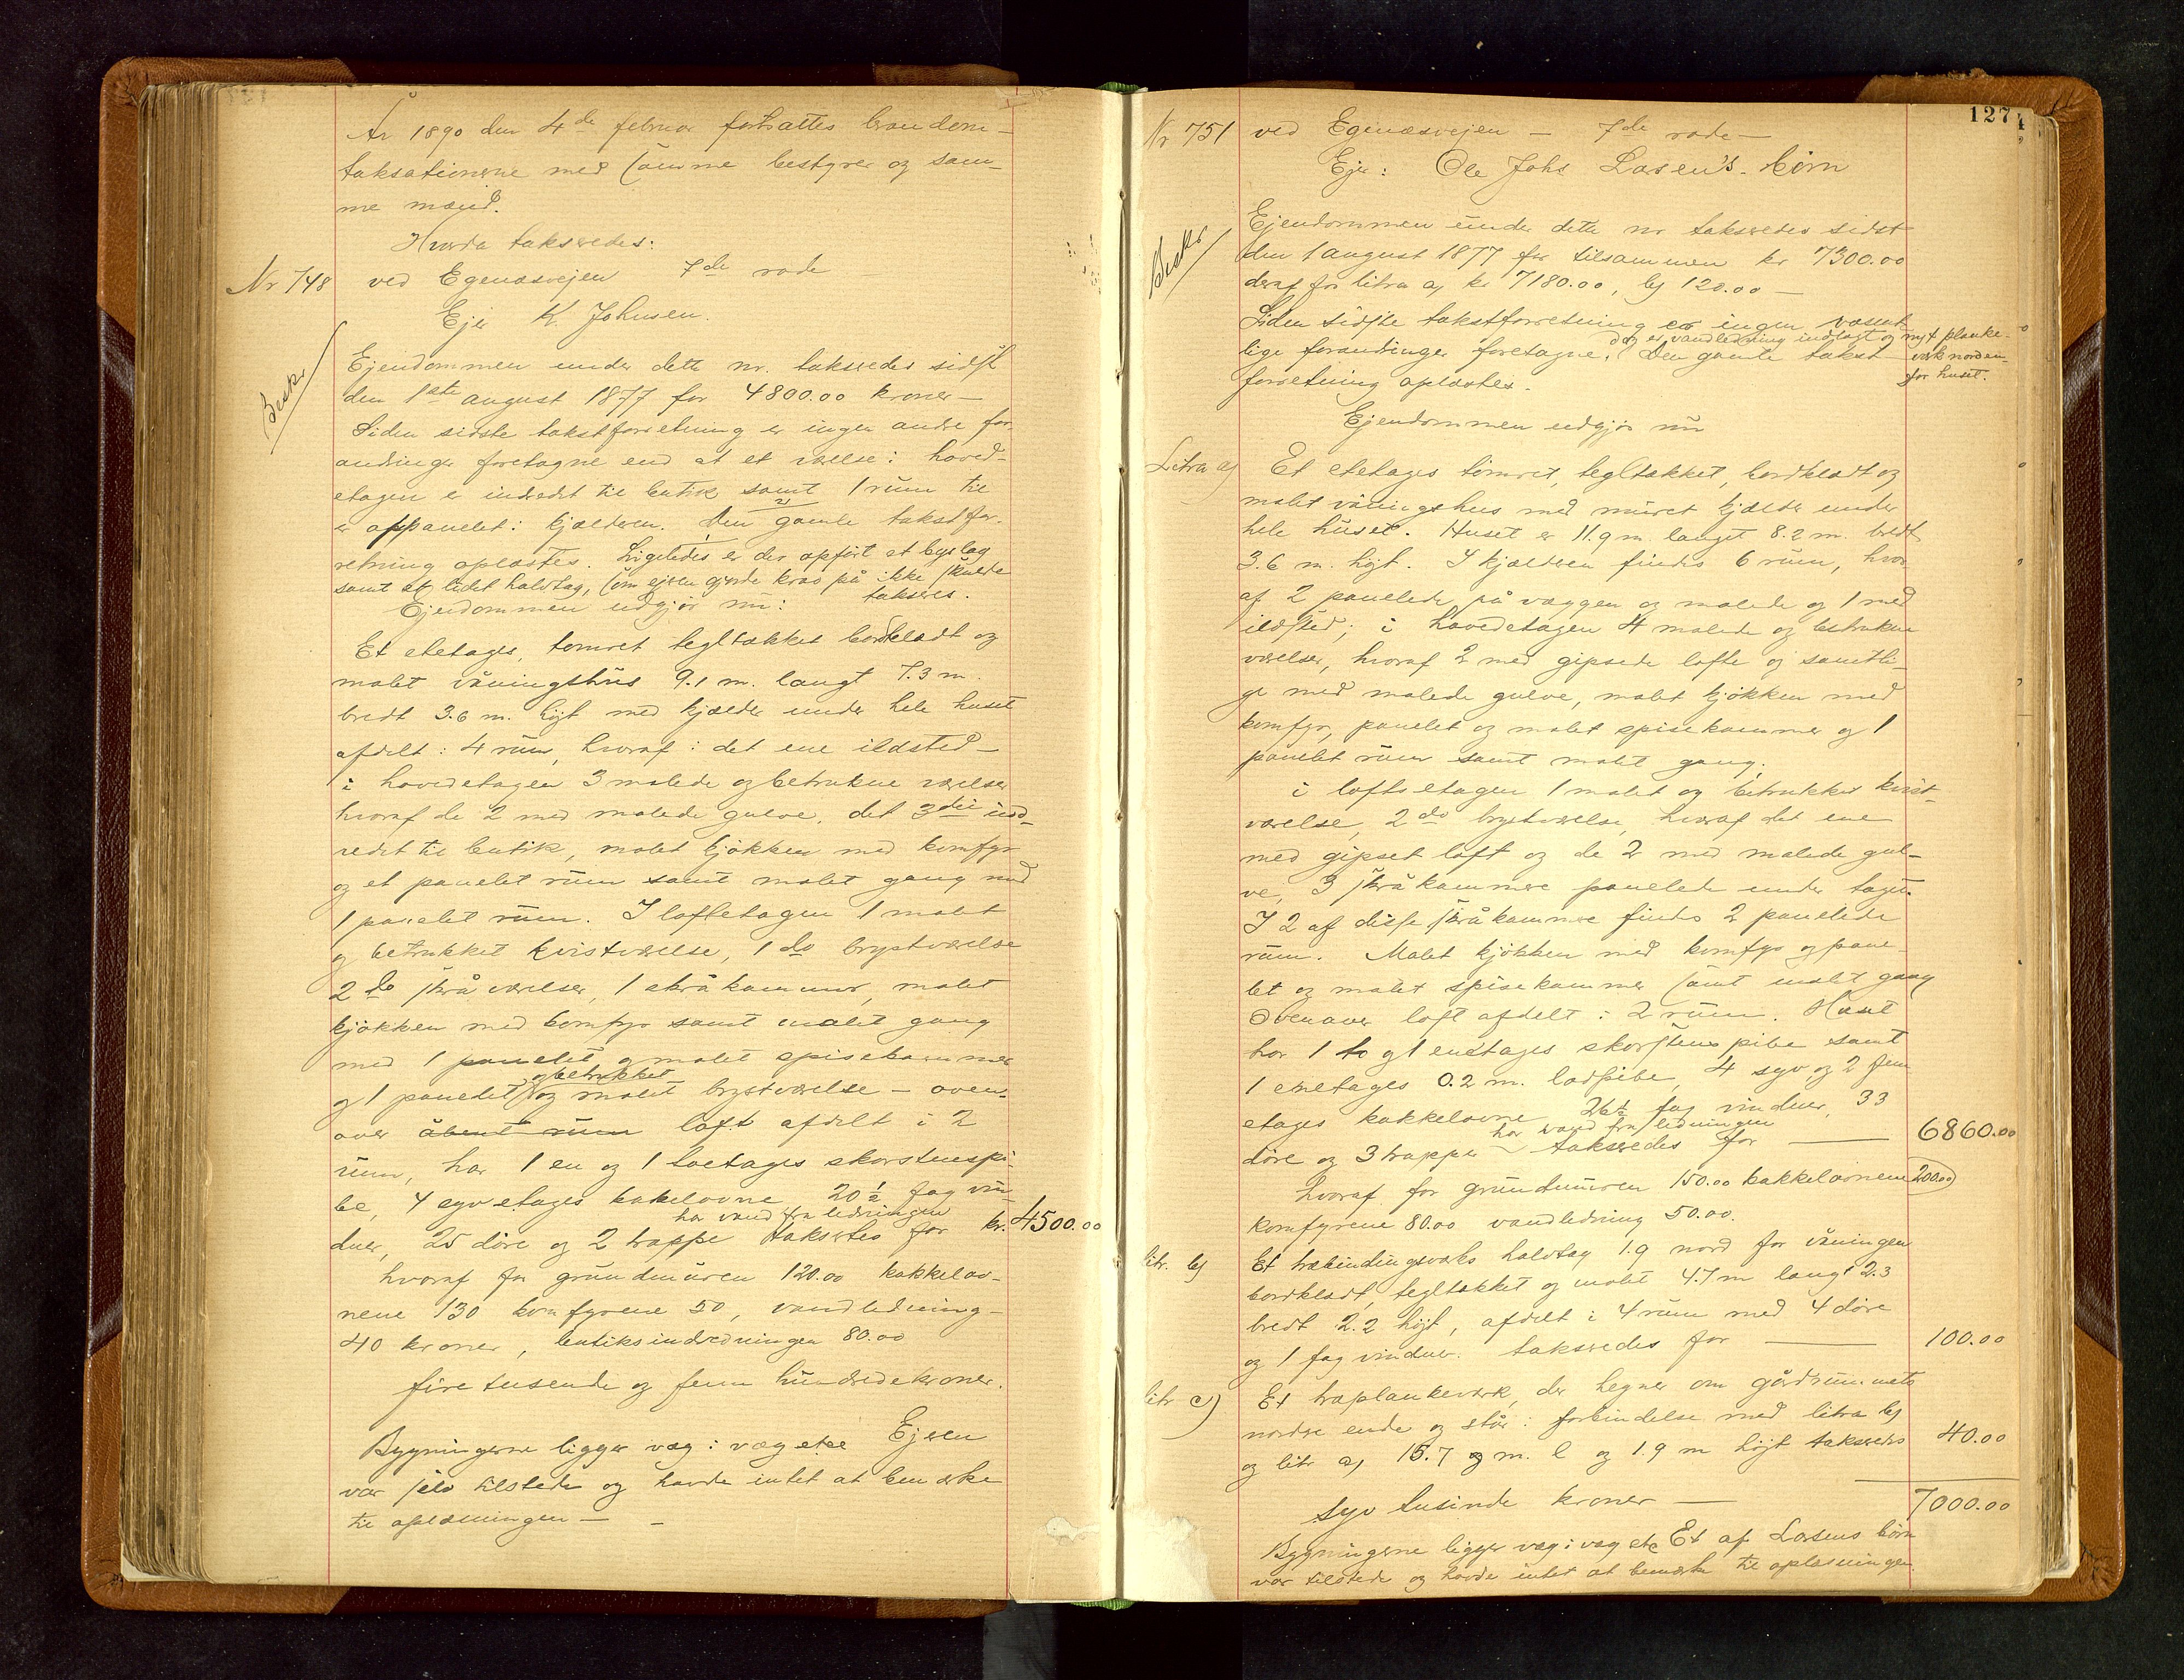 År 1890 den 4de februar fortsattes brandom-
taksationerne med samme bestyrer og sam-
me mænd.
Hvorda takseredes:
Nr 748 ved Egenæsvejen 7de rode
Ejer K. Johnsen.
Beskr
Ejendommen under dette nr. takseredes sidst
den 1ste august 1877 for 4800.00 kroner –
Siden sidste takstforretning er ingen andre for-
andringer foretagne end at et værelse i hoved-
etagen er indredet til butik samt 1 rum til
er oppanelet i kjælderen. Den gamle takstfor-
retning oplæstes. Ligeledes er der opført et bislag
samt et lidet halvtag, som ejeren gjorde krav på ikke skulde
takseres.
Ejendommen udgjør nu:
Et etetages, tømret tegltækket bordklædt og
malet våningshus 9.1 m. langt 7.3 m.
bredt 3.6 m. højt med kjælder under hele huset
afdelt i 4 rum, hvoraf i det ene ildsted –
i hovedetagen 3 malede og betrukne værelser
hvoraf de 2 med malede gulve, det 3die ind-
redet til butik, malet kjøkken med komfyr
og et panelet rum samt malet gang med
1 panelet rum. I loftetagen 1 malet
og betrukket kvistværelse, 1 do brystværelse
2 do skråværelser, 1 skråkammer, malet
kjøkken med komfyr samt malet gang
med 1 panelet og malet spisekammer
og betrukket
og 1 panelet og malet brystværelse – oven-
over åbent rum loft afdelt i 2
rum, har 1 en og 1 toetages skorstenspi-
be, 4 syvetages kakelovne 20½ fag vin-
har vand fra ledningen
duer, 25 døre og 2 trapper takseredes for kr. 4500.00
hvoraf for grundmuren 120.00 kakkelov-
nene 130 komfyrene 50, vandledning-
40 kroner, butiksindredningen 80.00
fire tusende og fem hundrede kroner.
Bygningerne ligger væg i væg etc Ejeren
var selv tilstede og havde intet at bemærke
til oplæsningen –
127
Nr 751 ved Egenæsvejen – 7de rode –
Ejer: Ole Johs Lasen's børn
Beskr
Ejendommen under dette nr takseredes sidst
den 1 august 1877 for tilsammen kr 7300.00
deraf for litra a) kr 7180.00, b) 120.00 –
Siden sidste takstforretning er ingen væsent-
dog er vandledning indlagt og nyt planke-
lige forandringer foretagne. Den gamle takst- værk norden-
forretning oplæstes. for huset.
Ejendommen udgjør nu
Litra a) Et etetages tømret, tegltækket, bordklædt og
malet våningshus med muret kjælder under
hele huset. Huset er 11.9 m. langt 8.2 m. bredt
3.6 m. højt. I kjælderen findes 6 rum, hvor
af 2 panelede på væggen og malede og 1 med
ildsted; i hovedetagen 4 malede og betrukne
værelser, hvoraf 2 med gipsede lofte og samtli-
ge med malede gulve, malet kjøkken med
komfyr, panelet og malet spisekammer og 1
panelet rum samt malet gang;
i loftsetagen 1 malet og betrukket kvist-
værelse, 2 do brystværelse, hvoraf det ene
med gipset loft og de 2 med malede gul-
ve, 3 skråkammere panelede under taget.
I 2 af disse skråkammere findes 2 panelede
rum. Malet kjøkken med komfyr og pane-
let og malet spisekammer samt malet gang
Ovenover loft afdelt i 2 rum. Huset
har 1 to og 1 enetages skorstenspibe samt
1 enetages 0.2 m. lodpibe, 4 syv og 2 fem
etages kakkelovne 26½ fag vinduer, 33
har vand fra ledningen
døre og 3 trapper takseredes for — 6860.00
hvoraf for grundmuren 150.00 kakkelovnene 200.00
komfyrene 80.00 vandledning 50.00.
litr. b) Et træbindingsværks halvtag 1.9 nord for våningen
bordklædt, tegltækket og malet 4.7 m langt 2.3
bredt 2.2 højt, afdelt i 4 rum med 4 døre
og 1 fag vinduer. takseredes for — 100.00
litr c) Et træplankeværk, der hegner om gårdrummets
nordre ende og står i forbindelse med litra b)
og litr a) 15.7 m. l og 1.9 m højt takseredes 40.00
syv tusinde kroner — 7000.00
Bygningerne ligger væg i væg etc Et af Lasens børn
var tilstede og havde intet at bemærke til oplæsningen.